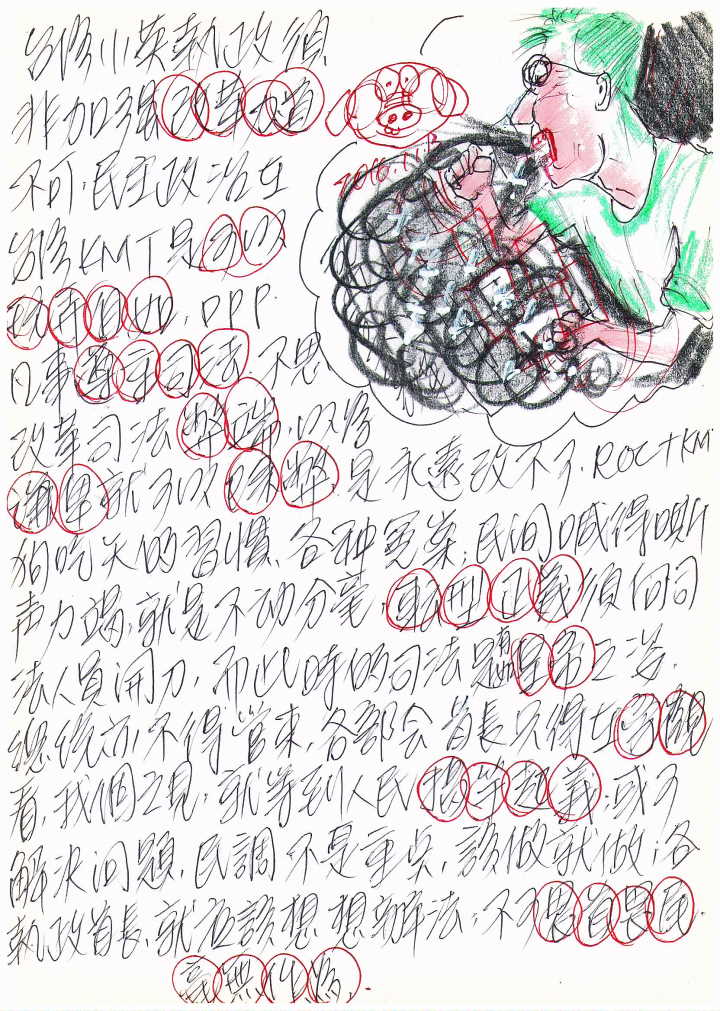 台灣小英執政須
非加強改革力道
不可.民主政治在
台灣KMT是可以
玩弄自如,DPP.
凡事尊重司法.不思
改革司法弊端.以為
就可以.是永遠改不了.ROC十KM
狗吃天的習慣.各種冤案,民间喊得嘶
声力竭,就是不动分毫,轉型正義須向司
法人員開刀,而此時的司法
總統亦不得管束,各部会首長只得在旁觀
看,我個之見,就等到人民揭竿起義.或可
解決问題,民調不是重点,該做就做,各
執政首長,就应該想想辦法,不可畏首畏尾.
義無作為.
2016.11.12